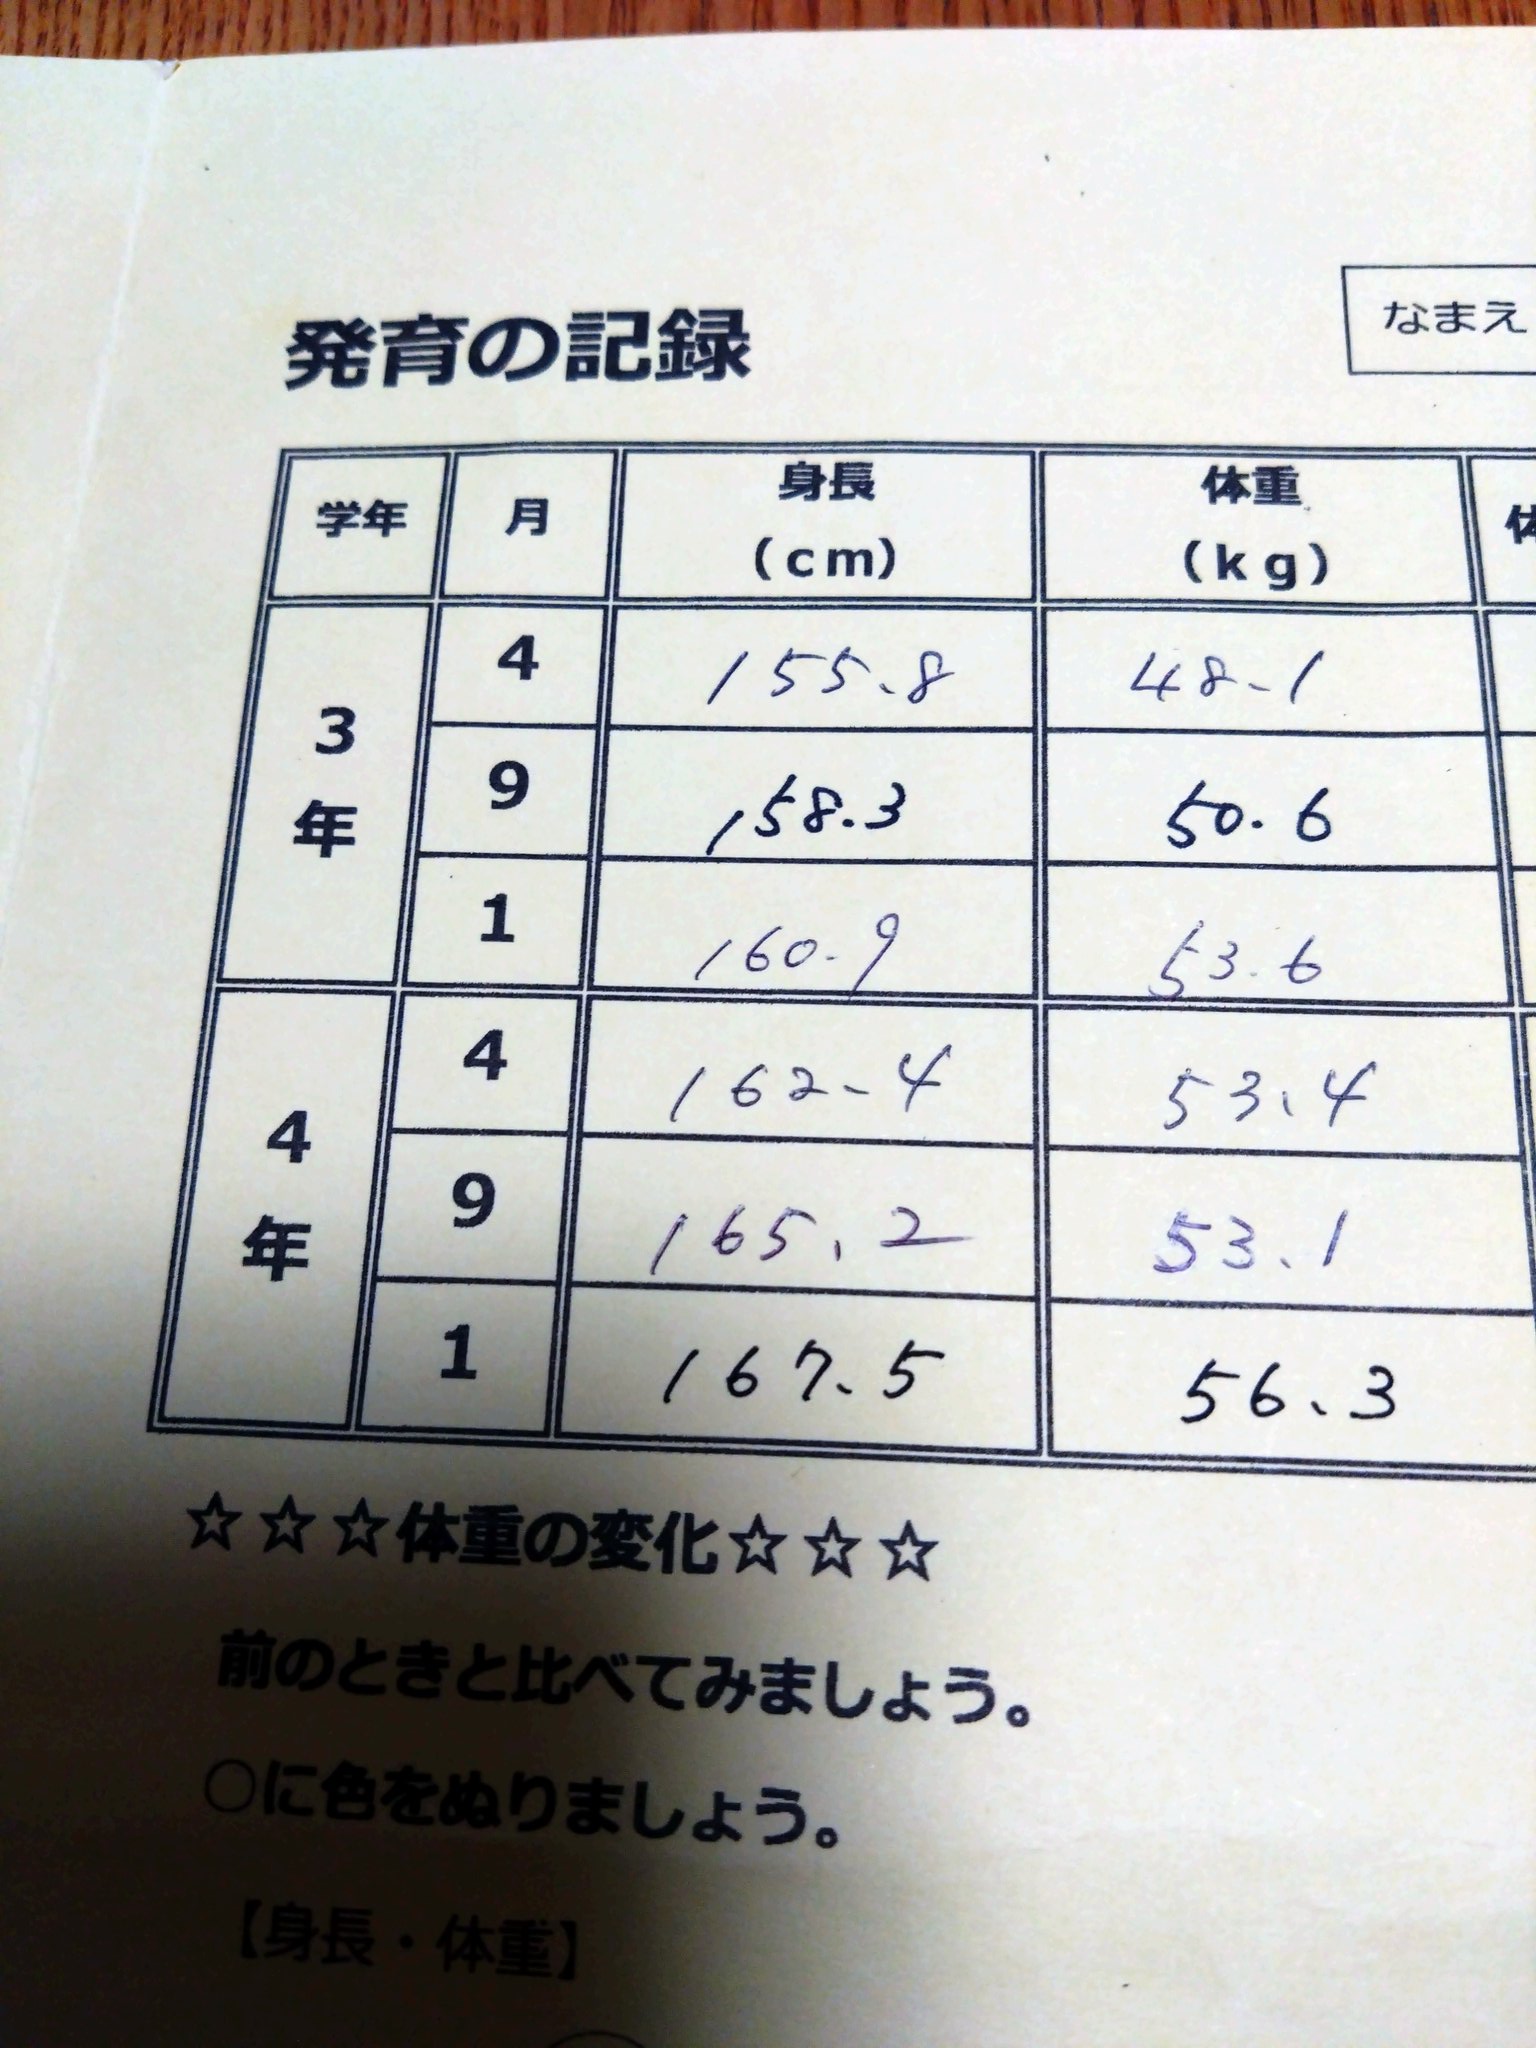 発育の記録
なまえ
学年 月 身長(cm) 体重(kg)
3年 4 155.8 48.1
9 158.3 50.6
1 160.9 53.6
4年 4 162.4 53.4
9 165.2 53.1
1 167.5 56.3
☆☆☆体重の変化☆☆☆
前のときと比べてみましょう。
○に色をぬりましょう。
【身長・体重】